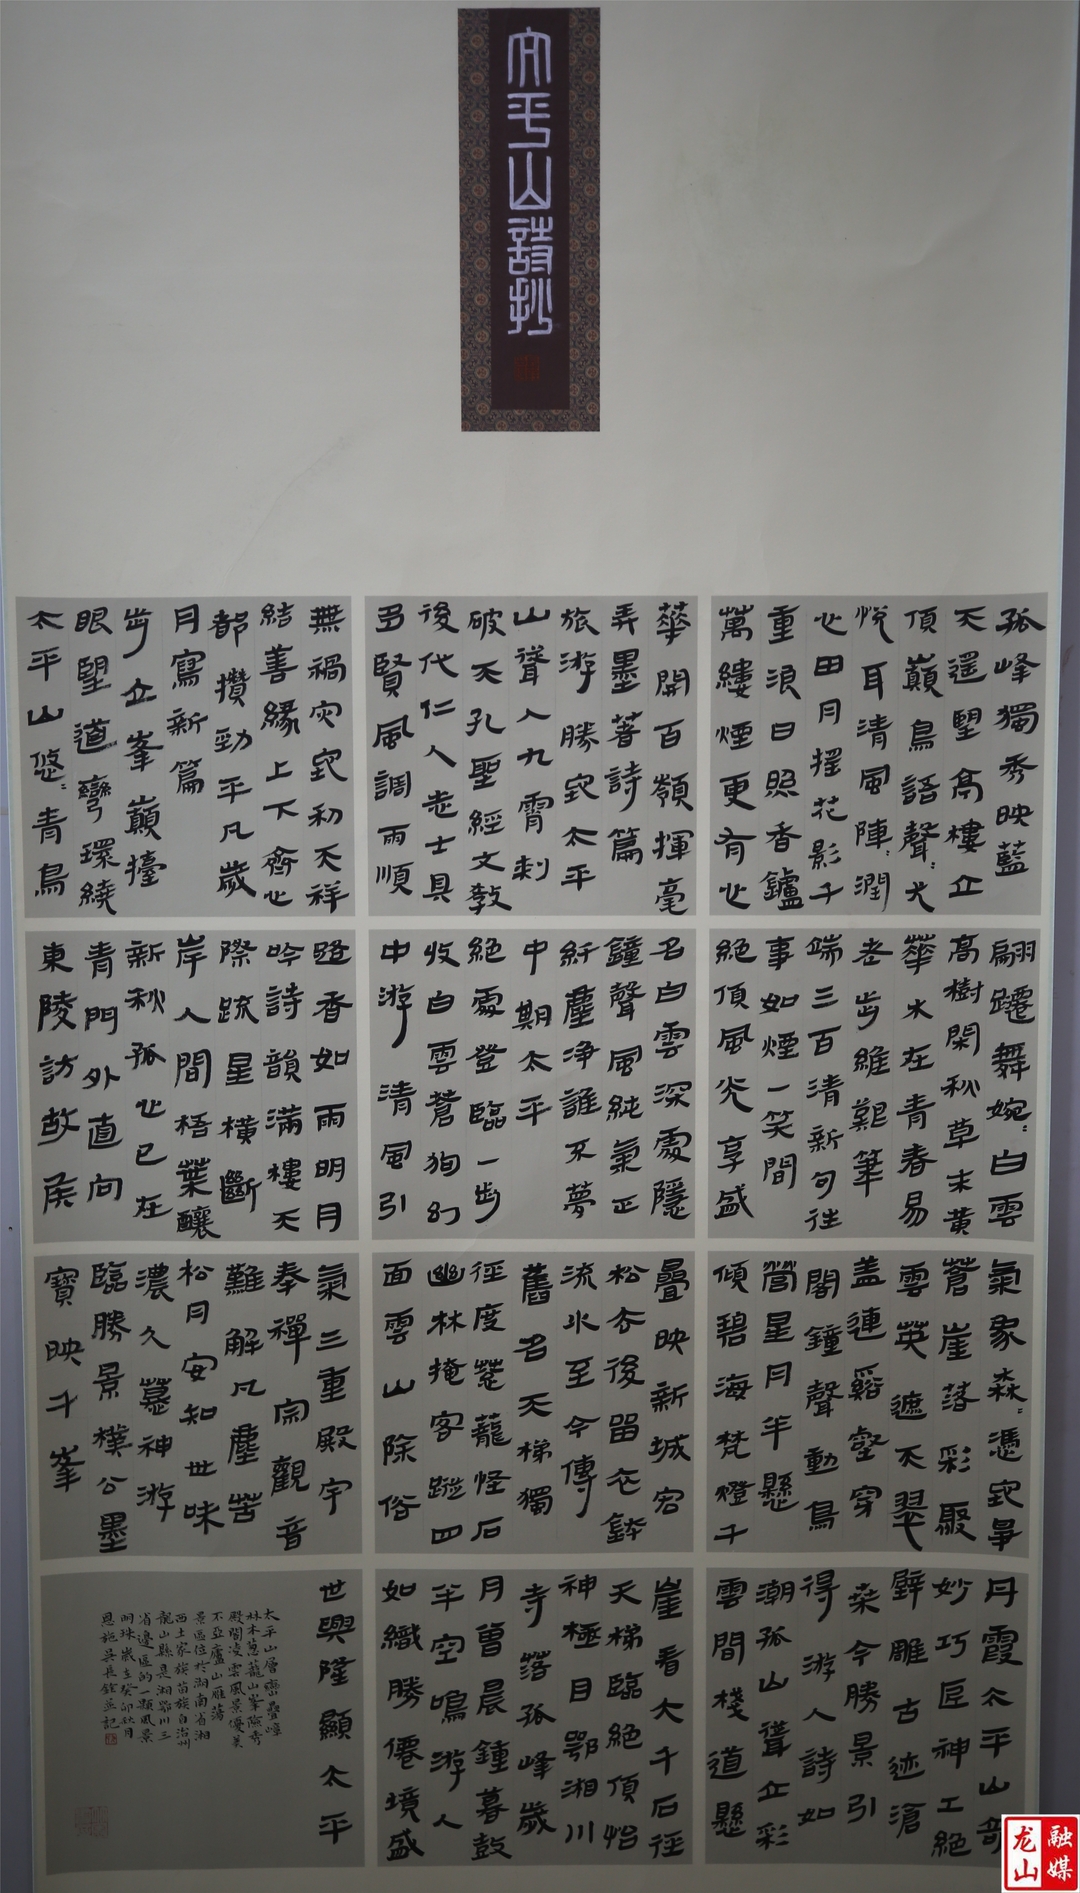 太平山詩抄
孤峰獨秀映藍
天遥望高樓立
頂巔鳥語聲〻犬
悅耳清風陣〻潤
心田月搖花影千
重浪日照香鑪
萬縷煙更有心
華開百嶺揮毫
弄墨著詩篇
旅游勝地太平
山聳入九霄刺
破天孔聖經文教
後代仁人志士具
多賢風調雨順
無禍灾地初天祥
結善緣上下齊心
都攢勁平凡歲
月寫新篇
步立峯巔擡
眼望道彎環繞
太平山悠〻青鳥
翩躚舞婉〻白雲
高樹閑秋草未黄
華水在青春易
老步維艱筆
端三百清新句往
事如煙一笑間
絕頂風光享盛
名白雲深處隱
鐘聲風純氣正
纤塵净誰不夢
中期太平
絕處登臨一步
收白雲蒼狗幻
中游清風引
路香如雨明月
吟詩韻滿樓天
際疏星橫斷
岸人間梧葉釀
新秋孤心已在
青門外直向
東陵訪故侯
氣象森〻憑地爭
蒼崖落彩聚
雲英遮天翠
盖連谿壑穿
閣鐘聲動鳥
營星月半懸
傾碧海梵燈千
疊映新城
松衣後留衣鉢
流水至今傳
舊名天梯獨
徑度蔥蘢怪石
幽林掩客蹤四
面雲山除俗
氣三重殿宇
奉禪宗觀音
難解凡塵苦
松月安知世味
濃久慕神游
臨勝景樸公墨
寶映千峯
丹霞太平山奇
妙巧匠神工絕
壁雕古迹滄
桑今勝景引
得游人詩如
潮孤山聳立彩
雲間棧道懸
崖看大千石徑
天梯臨絕頂怡
神極目鄂湘川
寺落孤峰歲
月曾晨鐘暮鼓
半空鳴游人
如織勝僊境盛
世興隆顯太平
太平山層巒疊嶂
林木蔥蘢山峯險奇
殿閣凌雲風景優美
不亞廬山雁蕩
景區位於湖南省湘
西土家族苗族自治州
龍山縣是湘鄂川三
省邊區的一顆風景
明珠歲在癸卯秋月
恩施吳長銓並記
龙山融媒